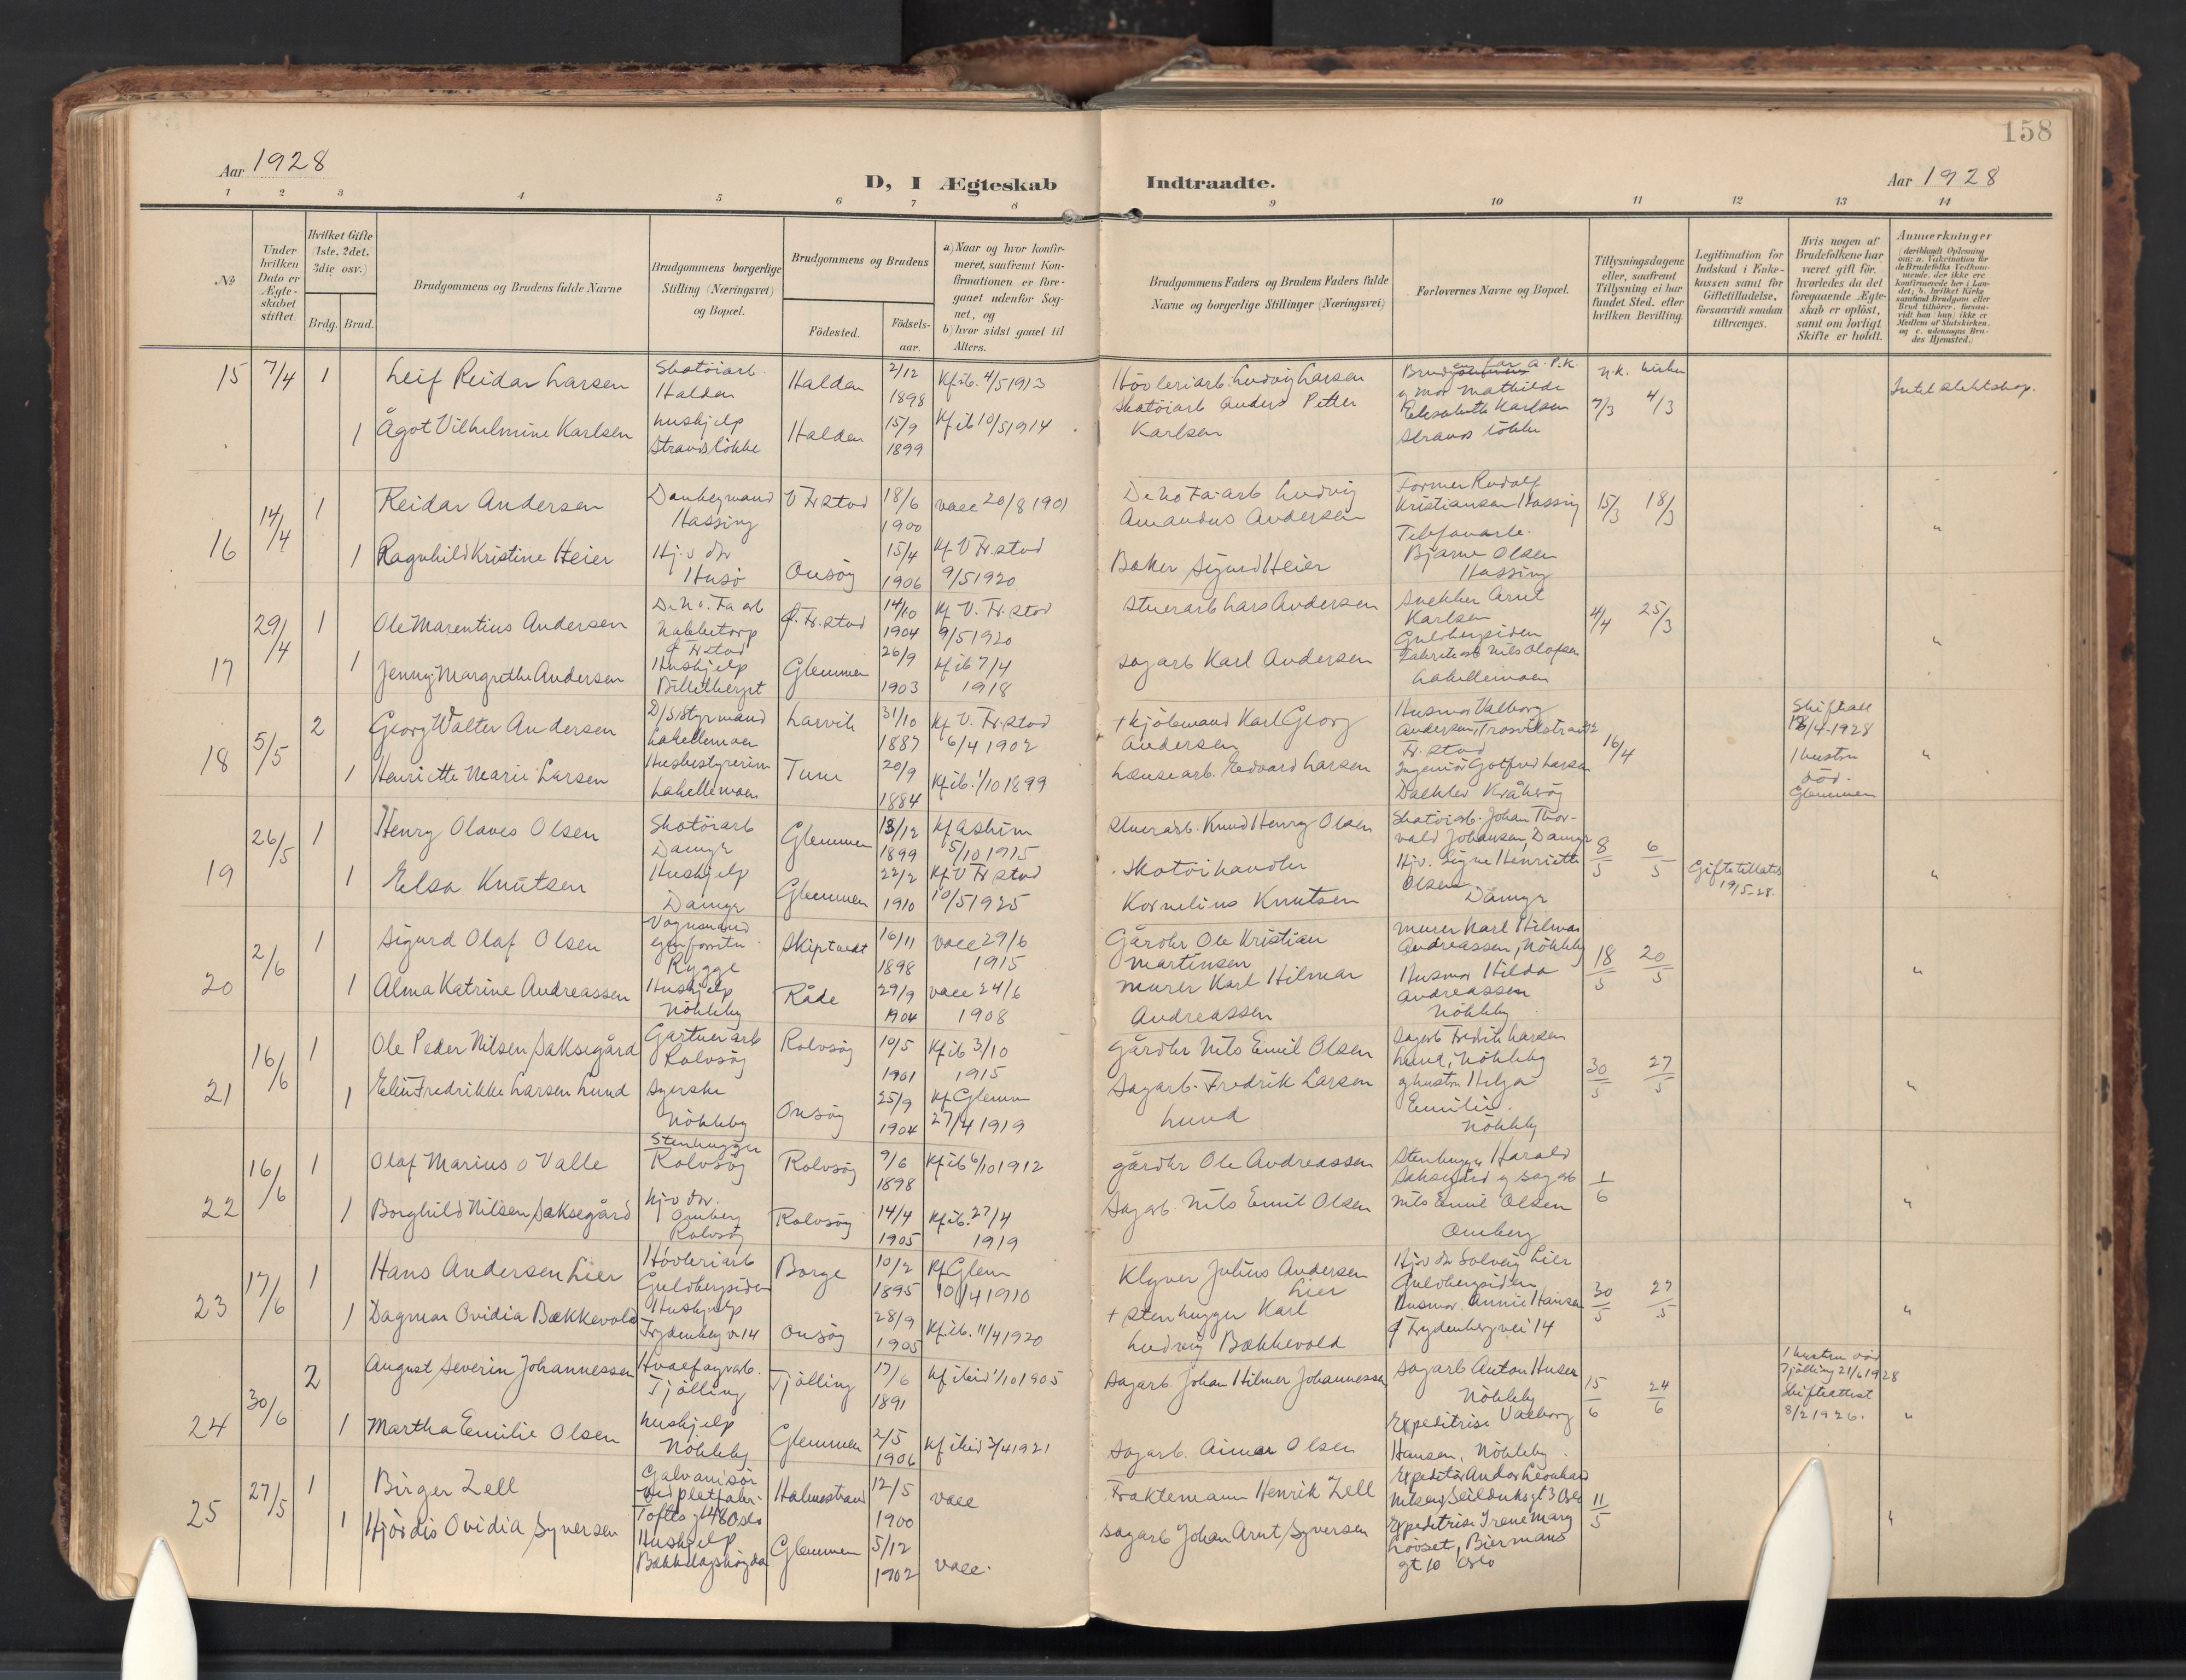 158
Aar 1928
D, I Ægteskab Indtraadte.
Aar 1928
1 2 3 4 5 6 7 8 9 10 11 12 13 14
№
Under hvilken Dato er Ægteskabet stiftet.
Hvilket Gifte (1ste, 2det, 3die osv.)
Brdg. Brud.
Brudgommens og Brudens fulde Navne
Brudgommens borgerlige Stilling (Næringsvei) og Bopæl.
Brudgommens og Brudens
Fødested.
Fødselsaar.
a) Naar og hvor konfirmeret, saafremt Konfirmationen er foregaaet udenfor Sognet, og
b) hvor sidst gaaet til Alters.
Brudgommens Faders og Brudens Faders fulde Navne og borgerlige Stillinger (Næringsvei)
Forlovernes Navne og Bopæl.
Tillysningsdagene eller, saafremt Tillysning ei har fundet Sted, efter hvilken Bevilling.
Legitimation for Indskud i Enkekassen samt for Giftetilladelse, forsaavidt saadan tiltrænges.
Hvis nogen af Brudefolkene har været gift før, hvorledes da det foregaaende Ægteskab er opløst, samt om lovligt Skifte er holdt.
Anmerkninger
15 7/4 1 Leif Reidar Larsen Skotøiarb. Halden Halden 2/12 1898 Kf. ib. 4/5 1913 Høvleriarb. Ludvig Larsen
1 Ågot Vilhelmine Karlsen Hushjelp Strandsløkke Halden 15/9 1899 Kf ib 10/5 1914 Skotøiarb Anders Petter Karlsen
og mor Mathilde Elisabeth Karlsen 7/3 4/3
16 14/4 1 Reidar Andersen Hassing V Fr.stad 18/6 1900 vacc 20/8 1901 De No Fa. arb Ludvig Amandus Andersen
Former Rudolf Kristiansen Hassing 15/3 18/3 "
1 Ragnhild Kristine Heier Hj.v. dtr Husø Onsøy 15/4 1906 Kf V Fr.stad 9/5 1920 Baker Sigurd Heier
Telefonarb. Bjarne Olsen Hassing
17 29/4 1 Ole Marentius Andersen De No. Fa arb Nabbetorp Ø. Fr.stad 14/10 1904 Kf V. Fr.stad 9/5 1920 Stuerarb Lars Andersen
Snekker Arnt Karlsen Guldbergsiden 4/4 25/3 "
1 Jenny Margrethe Andersen Hushjelp Glemmen 26/9 1903 Kf ib 7/4 1918 Sagarb Karl Andersen
Nils Olafsen Lahellemoen
18 5/5 2 Georg Walter Andersen D/S Styrmand Lahellemoen Larvik 31/10 1887 Kf V. Fr.stad 6/4 1902 + Kjøbmand Karl Georg Andersen
Husmor Valborg Andersen, Fr.stad 16/4 "
1 Henriette Marie Larsen Husbestyrerin Lahellemoen Tune 20/9 1884 Kf ib. 1/10 1899 Lænsearb. Edvard Larsen
Ingeniør Gotfred Larsen Kråkerøy
1 hustru død. Glemmen
19 26/5 1 Henry Olaves Olsen Skotøiarb Damyr Glemmen 13/12 1899 Kf Askim 5/10 1915 Stuerarb. Knud Henry Olsen
Skotøiarb. Johan Thorvald Johansen, Damyr 8/5 6/5 Giftetillates 19/5-28. "
1 Elsa Knutsen Hushjelp Damyr Glemmen 22/2 1910 Kf V Fr stad 10/5 1925 Skotøihandler Kornelius Knutsen
Hjv. Signe Henriette Olsen Damyr
20 2/6 1 Sigurd Olaf Olsen Vognmand Rygge Skiptvedt 16/11 1898 vacc 29/6 1915 Gårdbr Ole Kristian Martinsen
Murer Karl Hilmar Andreassen, Nøkleby 18/5 20/5 "
1 Alma Katrine Andreassen Hushjelp Nøkleby Råde 29/9 1904 vacc 24/6 1908 Murer Karl Hilmar Andreassen
Husmor Hilda Andreassen Nøkleby
21 16/6 1 Ole Peder Nilsen Saksegård Gartnerarb Rolvsøy Rolvsøy 10/5 1901 Kf ib 3/10 1915 Gårdbr Nils Emil Olsen
Sagarb Fredrik Larsen Lund, Nøkleby 30/5 27/5 "
1 Elin Fredrikke Larsen Lund Syerske Nøkleby Onsøy 25/9 1904 Kf Glemm 27/4 1919 Sagarb. Fredrik Larsen Lund
og hustru Helga Emilie. Nøkleby
22 16/6 1 Olaf Marius o Valle Stenhugger Rolvsøy Rolvsøy 9/6 1898 Kf ib 6/10 1912 Gårdbr Ole Andreassen
Stenhugger Harald Saksegård og sagarb 1/6 "
1 Borghild Nilsen Saksegård Hj.v dtr. Omberg Rolvsøy Rolvsøy 14/4 1905 Kf ib. 27/4 1919 Sagarb. Nils Emil Olsen
Nils Emil Olsen Omberg
23 17/6 1 Hans Andersen Lier Høvleriarb Guldbergsiden Borge 10/2 1895 Kf Glem 10/4 1910 Klyver Julius Andersen Lier
Hjv dtr Solveig Lier Guldbergsiden 30/5 27/5 "
1 Dagmar Ovidia Bækkevold Hushjelp Frydenberg v. 14 Onsøy 28/9 1905 Kf. ib. 11/4 1920 + Stenhugger Karl Ludvig Bækkevold
Husmor Annie Hansen Frydenbergvei 14
24 30/6 2 August Severin Johannessen Tjølling Tjølling 17/6 1891 Kf ibid 1/10 1905 Sagarb. Johan Hilmer Johannessen
Sagarb Anton Huser Nøkleby 15/6 24/6
1 hustru død Tjølling 21/6 1928 Skifteattest 8/2 1926. "
1 Martha Emilie Olsen Hushjelp Nøkleby Glemmen 2/5 1906 Kf ibid 3/4 1921 Sagarb. Aimar Olsen
Expeditrise Valborg Hansen, Nøkleby.
25 27/5 1 Birger Zell Galvanisør Toftes gt 48 Oslo Holmestrand 12/5 1900 vacc Fraktemann Henrik Zell
Expeditør Andor Leonhard Nilsen, Seilduksgt 3 Oslo 11/5 "
1 Hjørdis Ovidia Syversen Hushjelp Glemmen 5/12 1902 vacc. Sagarb Johan Arnt Syversen
Expeditrise Irene Mary Løvset, Biermans gt 10 Oslo